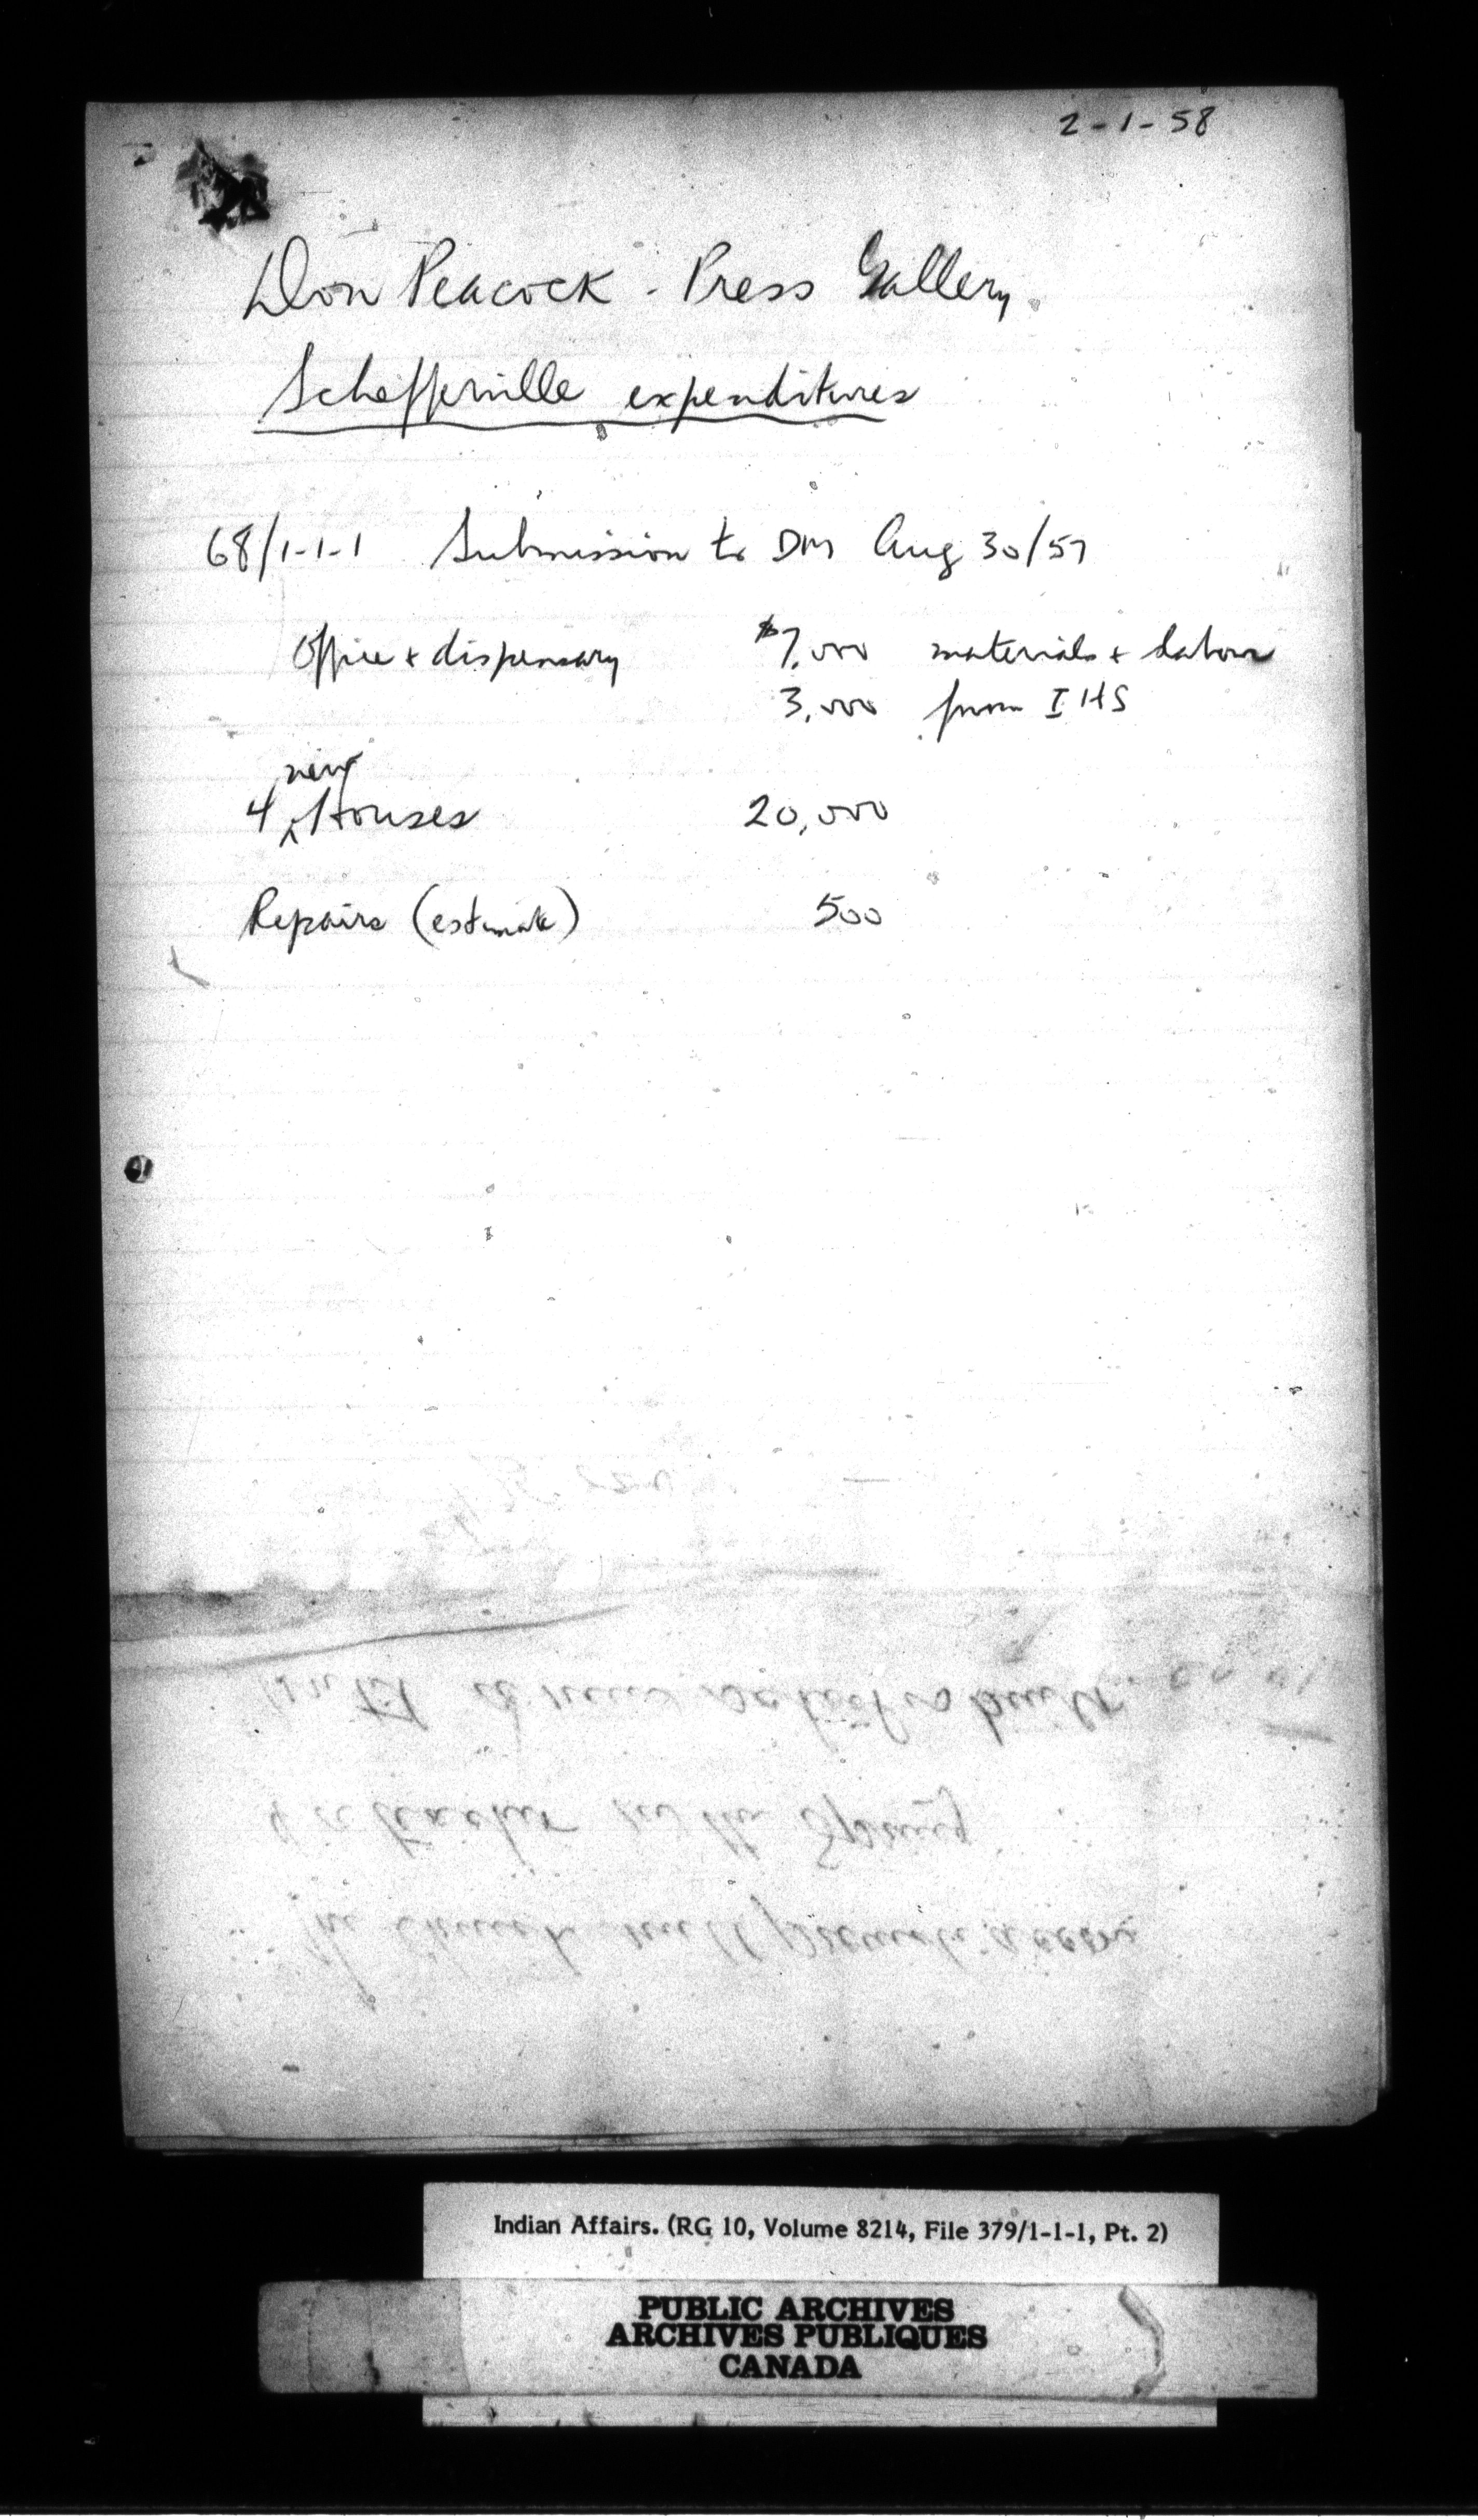 2-1-58
Don Peacock - Press Gallery
Schefferville expenditures
68/1-1-1 Submission to DM Aug 30/57
Office & dispensary $7,000 materials & labour
3,000 from IHS
new
4 ^ Houses 20,000
Repairs (estimate) 500
Indian Affairs. (RG 10, Volume 8214, File 379/1-1-1, Pt. 2)
PUBLIC ARCHIVES
ARCHIVES PUBLIQUES
CANADA